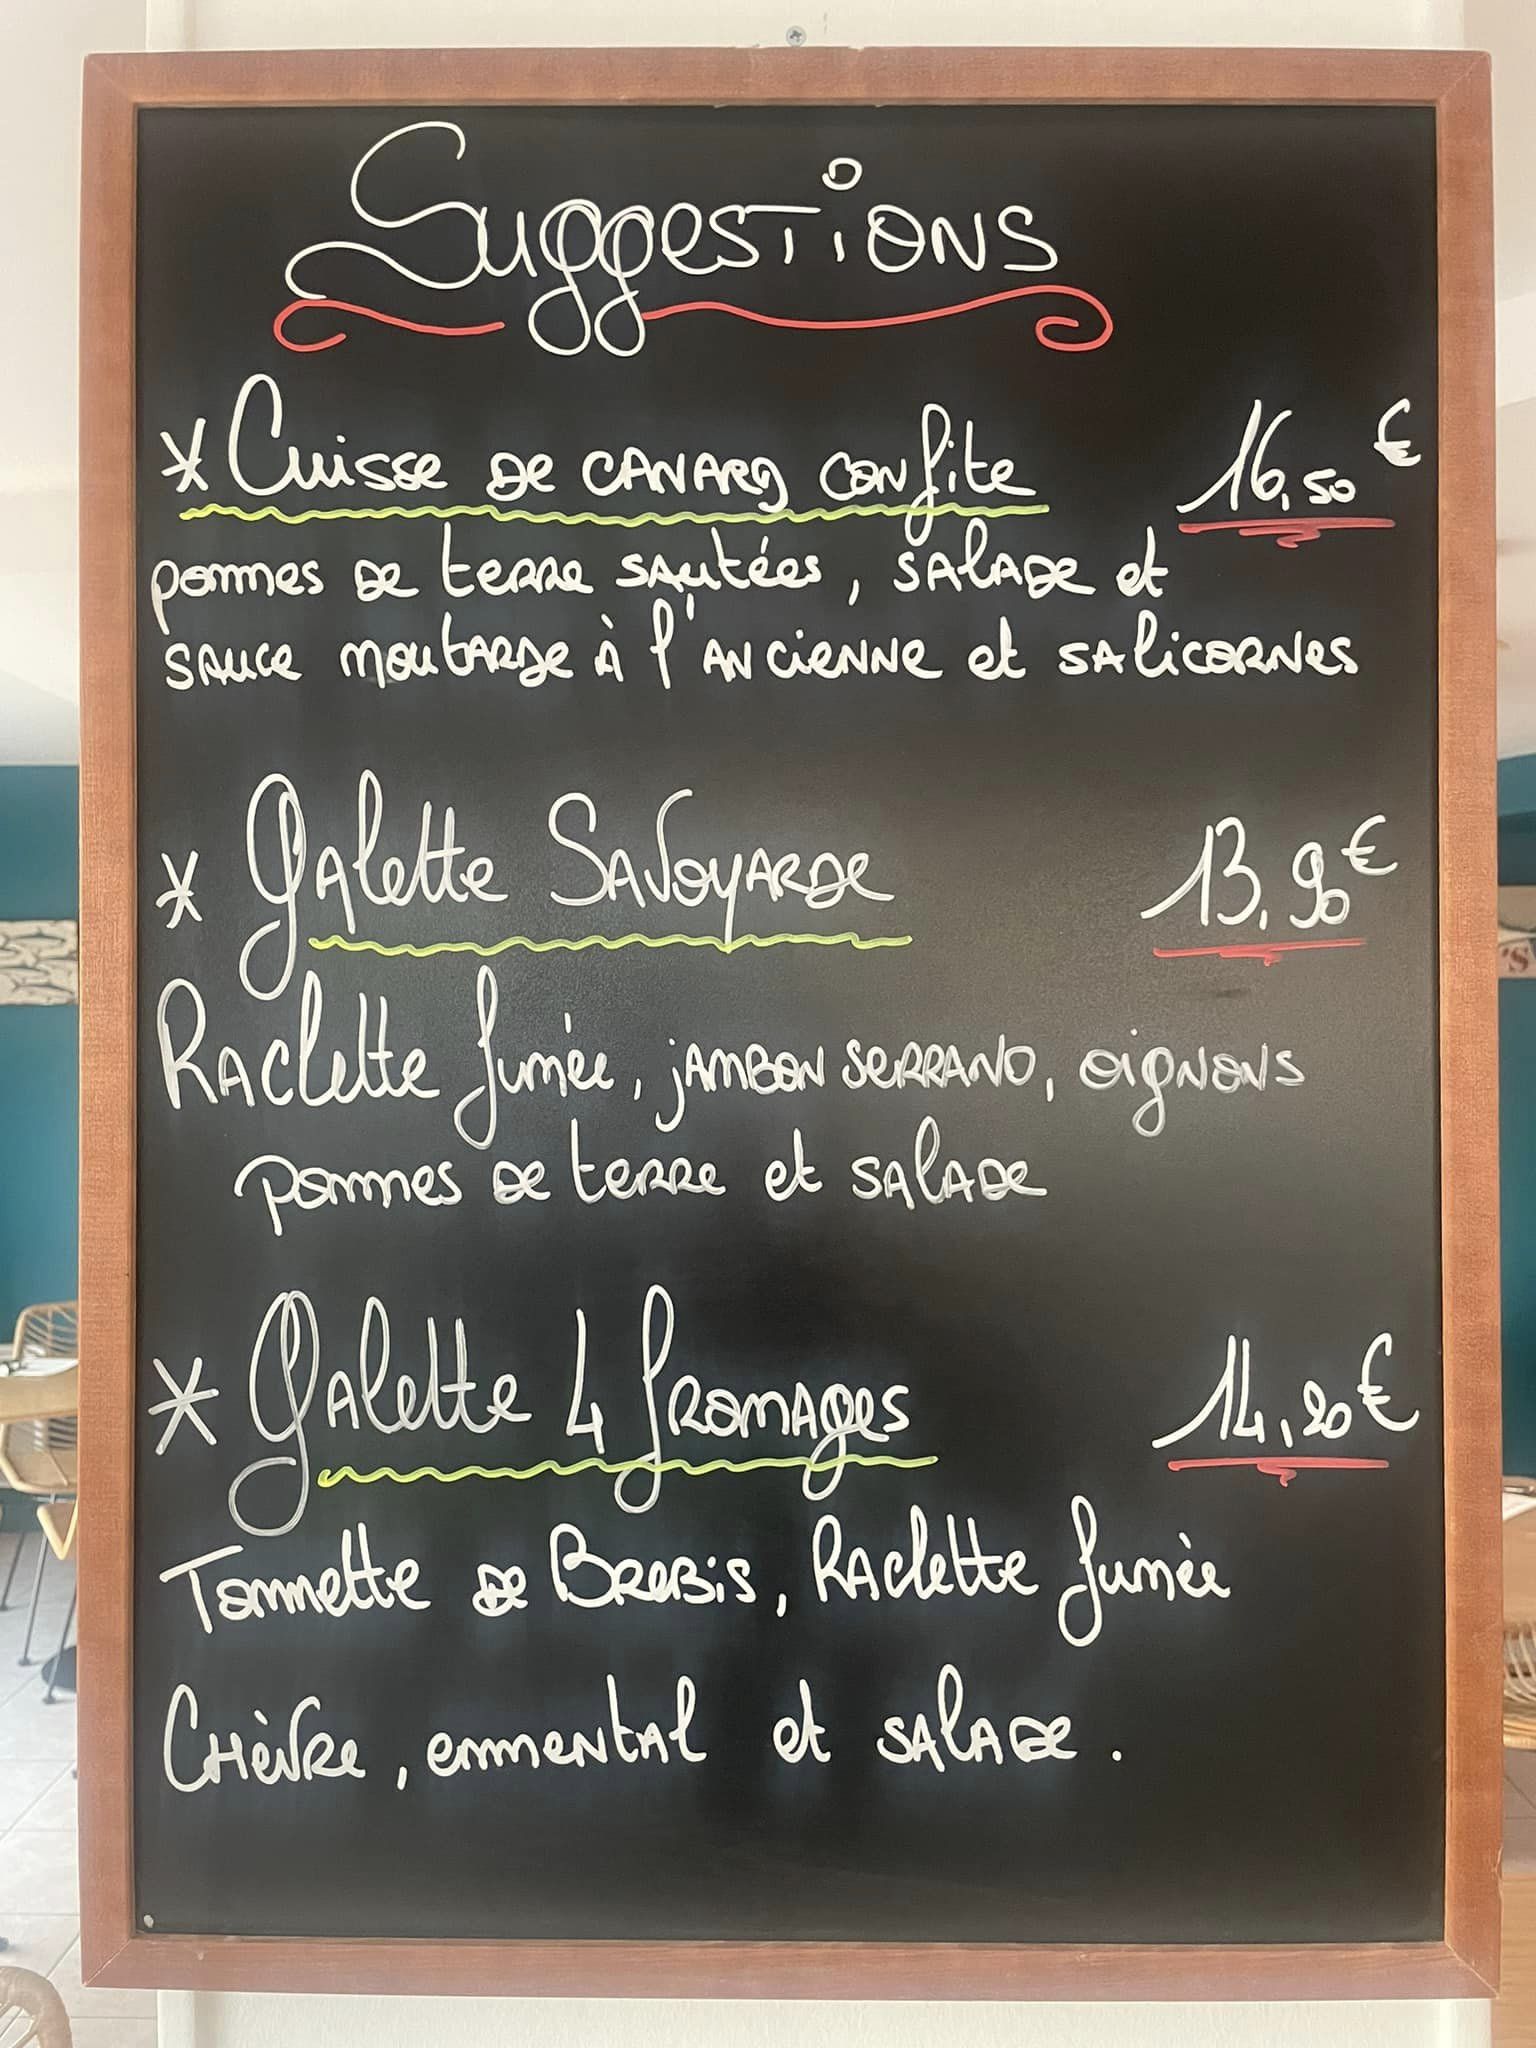 Suggestions
* Cuisse de canard confite 16,50 €
pommes de terre sautées, salade et
sauce moutarde à l'ancienne et salicornes
* Galette Savoyarde 13,90 €
Raclette fumée, jambon serrano, oignons
pommes de terre et salade
* Galette 4 fromages 14,20 €
Tommette de Brebis, Raclette fumée
Chèvre, emmental et salade.
'S